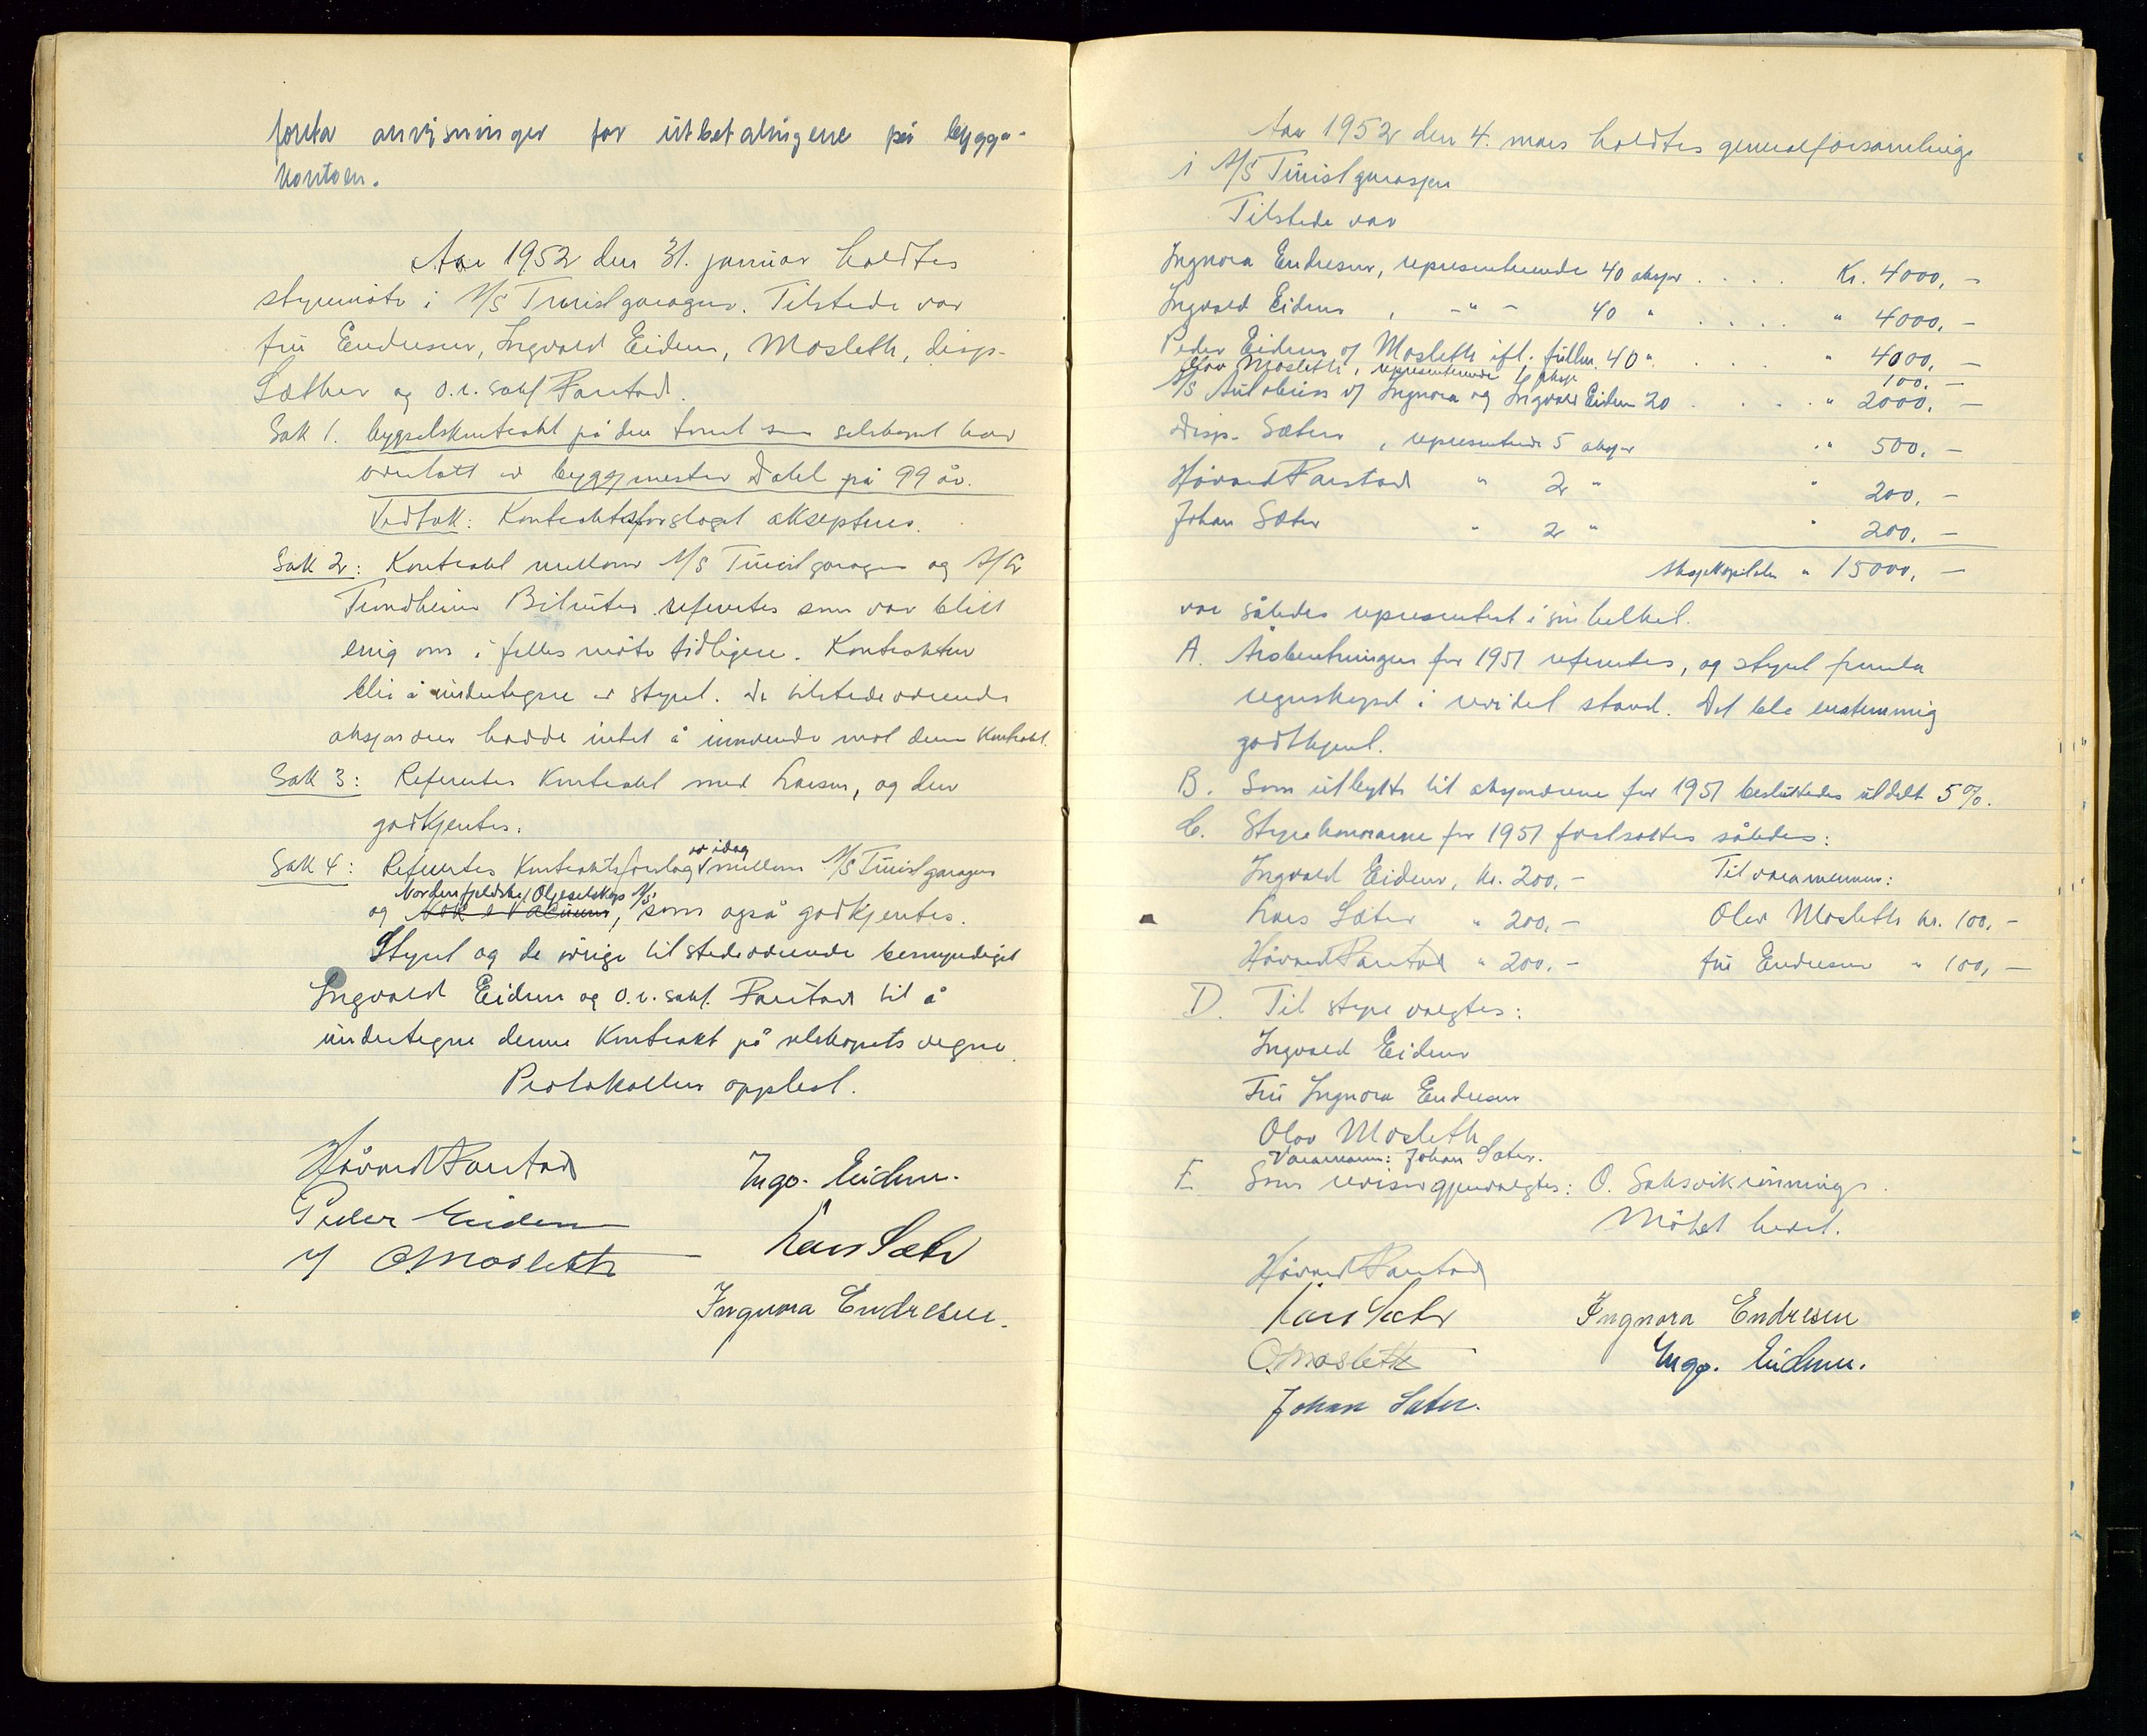 foreta anvisninger for utbetalingene på bygge-
kontoen.
Aar 1952 den 31. januar holdtes
styremöte i A/S Turistgaragen. Tilstede var
fru Endresen, Ingvald Eidem, Mosleth, disp.
Sæther og o.r.sakf Farstad.
Sak 1. bygselskontrakt på den tomt som selskapet har
overlatt av byggmester Dahl på 99 år.
Vedtak: Kontraktsforslaget akseptères.
Sak 2: Kontrakt mellom A/S Turistgaragen og A/S
Trondheim Bilruter refertes som var blitt
enig om i felles möte tidligere. Kontrakten
blir å undertegne av styret. De tilstedeværende
aksjonærer hadde intet å innvende mot denne kontrakt.
Sak 3: Refertes kontrakt med Larsen, og den
godkjentes.
Sak 4: Refertes kontraktsforslag av idag mellom A/S Turistgaragen
og Nordenfjeldske Oljeselskap A/S, som også godkjentes.
Styret og de övrige tilstedeværende bemyndiget
Ingvald Eidem og o.r.sakf. Farstad til å
undertegne denne kontrakt på selskapets vegne.
Protokollen opplest.
Håvard Farstad Ingv. Eidem.
Peder Eidem Lars Sæter
v/ O Mosleth
Ingnora Endresen.
Aar 1952 den 4. mars holdtes generalforsamling
i A/S Turistgarasjen
Tilstede var
Ingnora Endresen, representerende 40 aksjer . . . . Kr. 4000,-
Ingvald Eidem , -"- 40 " . . . . " 4000,-
Peder Eidem v/ Mosleth ifl. fullm. 40 " . . . " 4000,-
Olav Mosleth, representerende 1 aksje 100,-
A/S Autobuss v/ Ingnora og Ingvald Eidem 20 . . . . " 2000,-
Disp. Sæter , representerende 5 aksjer " 500,-
Håvard Farstad " 2 " " 200,-
Johan Sæter " 2 " " 200,-
Aksjekapitalen " 15000,-
var således representert i sin helhet.
A. Årsberetningen for 1951 refertes, og styret fremla
regnskapet i revidert stand. Det ble enstemmig
godkjent.
B. Som utbytte til aksjonærene for 1951 besluttedes utdelt 5%.
C. Styrehonorarene for 1951 fastsattes således:
Ingvald Eidem, kr. 200,- Til varamennene:
Lars Sæter " 200,- Olav Mosleth kr. 100,-
Håvard Farstad " 200,- fru Endresen " 100,-
D. Til styre valgtes:
Ingvald Eidem
Fru Ingnora Endresen
Olav Mosleth
Varamann: Johan Sæter.
E Som revisor gjenvalgtes: O. Saksvikrönning.
Mötet hevet.
Håvard Farstad
Lars Sæter Ingnora Endresen
O. Mosleth Ingv. Eidem.
Johan Sæter.